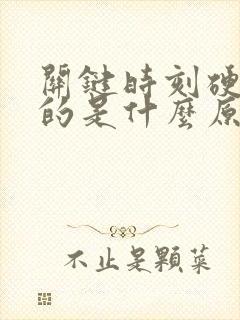 關鍵時刻硬
的是什麼原
不止是顆菜